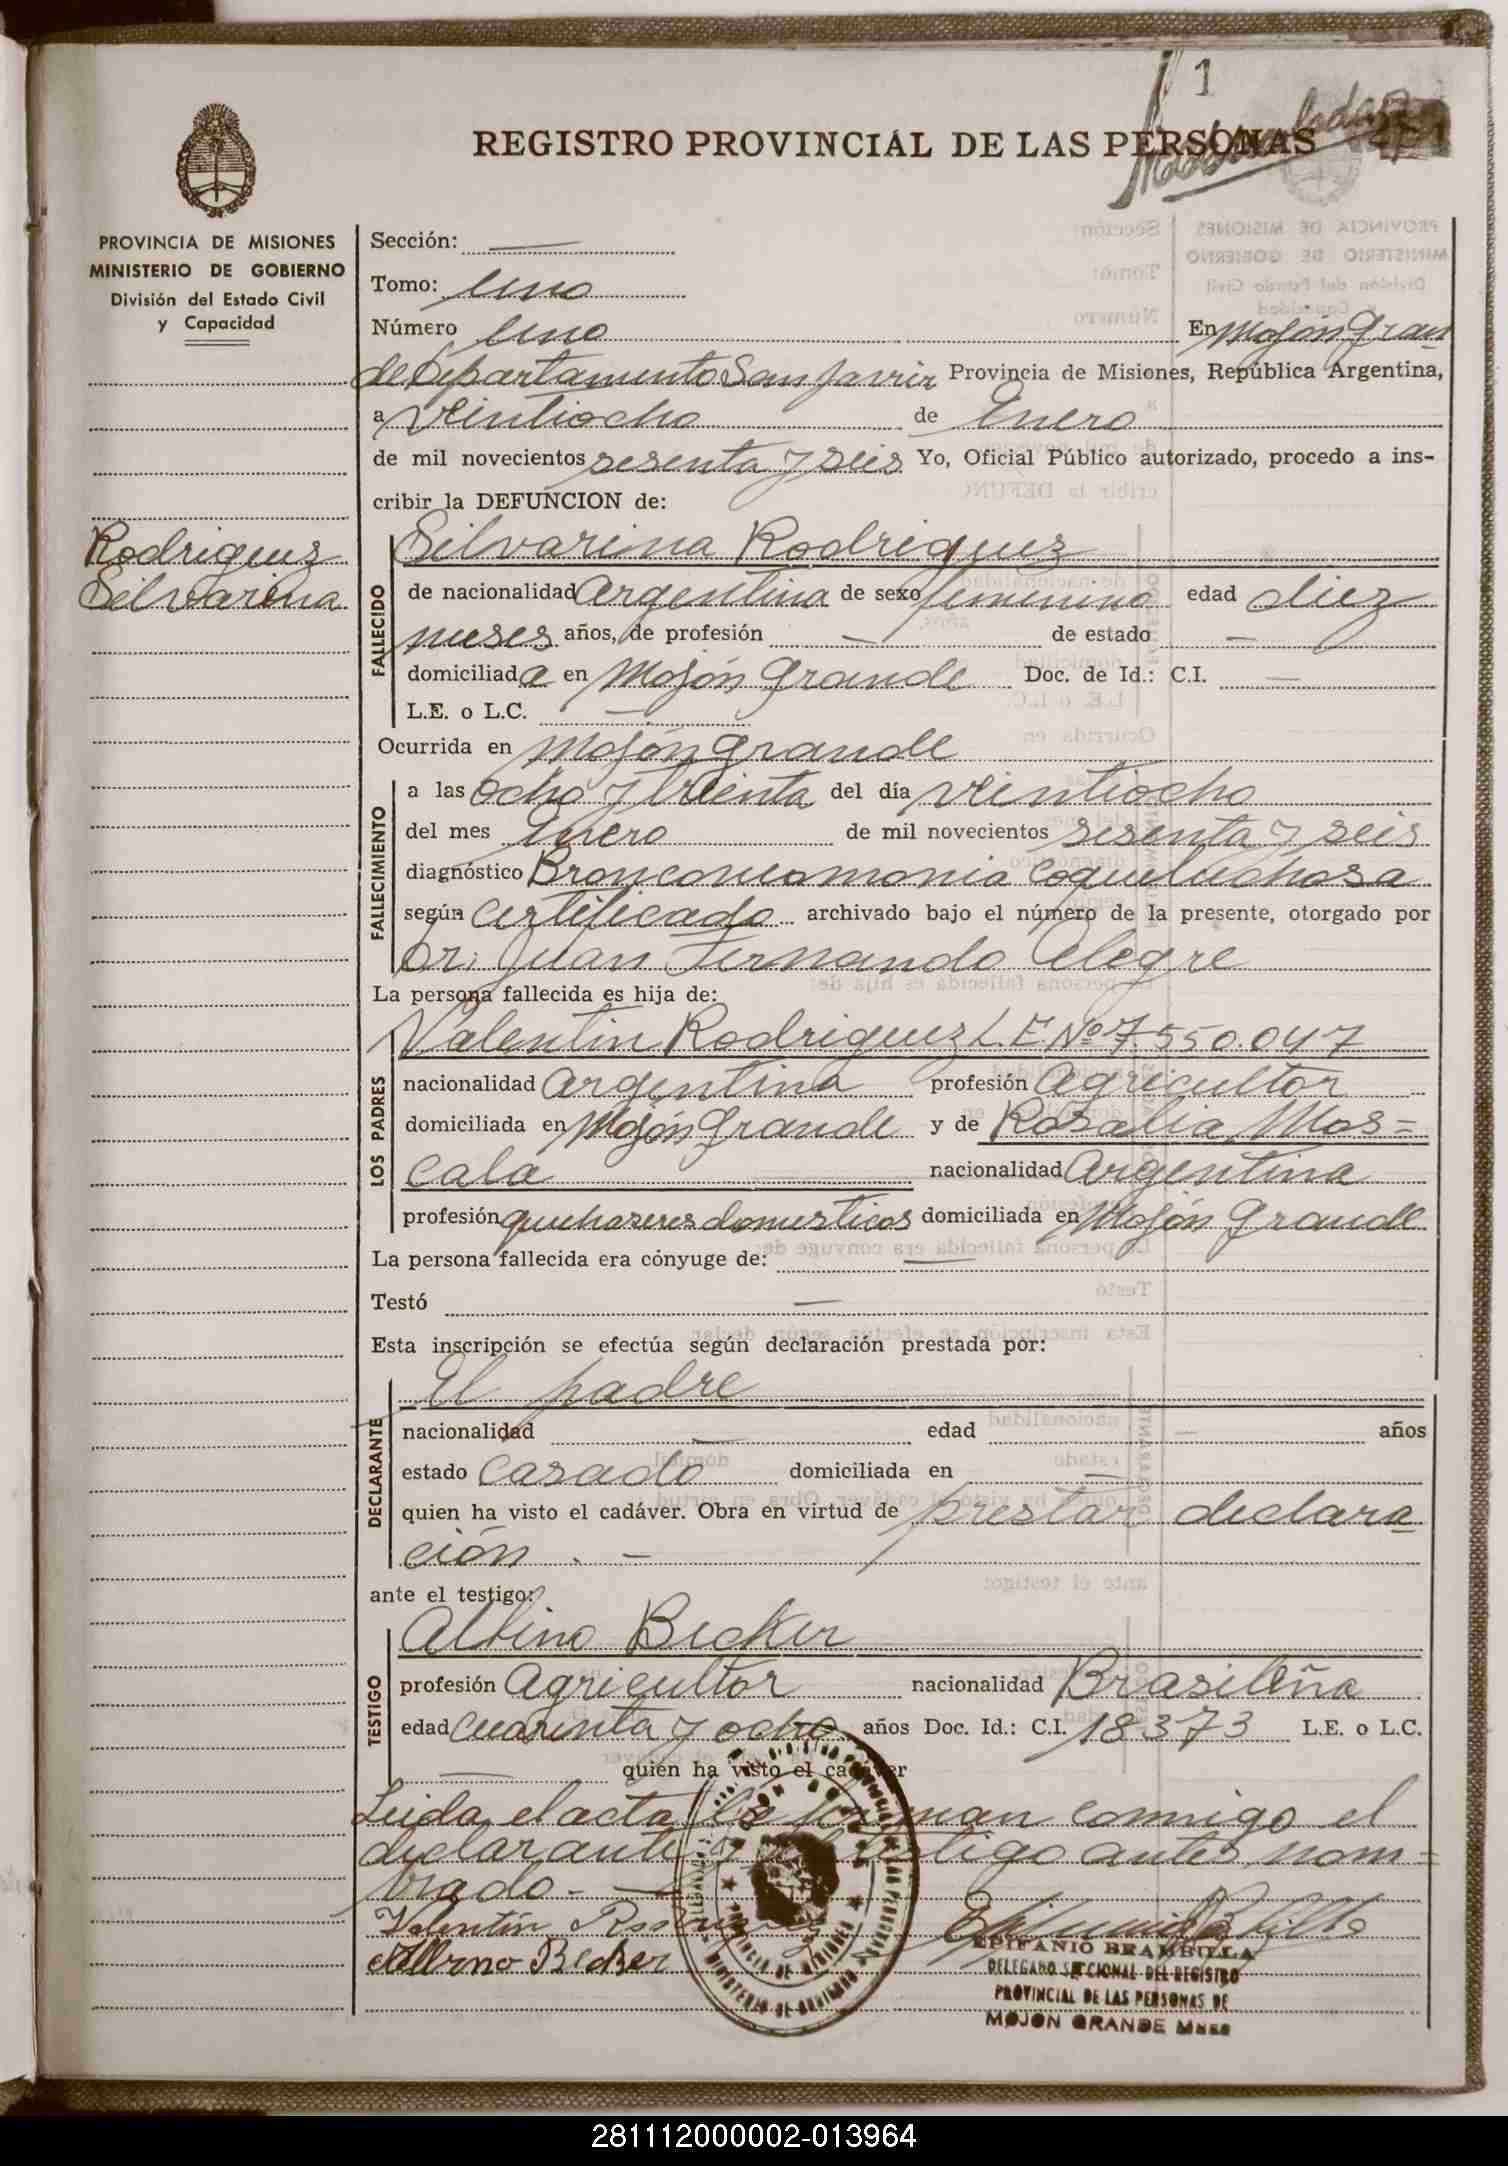 1
REGISTRO PROVINCIAL DE LAS PERSONAS
PROVINCIA DE MISIONES
MINISTERIO DE GOBIERNO
División del Estado Civil
y Capacidad
Rodriguez
Silvarina
Sección: —
Tomo: Uno
Número Uno En Mojón Gran
de Departamento San Javier Provincia de Misiones, República Argentina,
a veintiocho de Enero
de mil novecientos sesenta y seis Yo, Oficial Público autorizado, procedo a ins-
cribir la DEFUNCION de:
FALLECIDO
Silvarina Rodriguez
de nacionalidad Argentina de sexo femenino edad diez
meses años, de profesión — de estado —
domiciliada en Mojón Grande Doc. de Id.: C.I. —
L.E. o L.C. —
Ocurrida en Mojón Grande
FALLECIMIENTO
a las ocho y treinta del día veintiocho
del mes Enero de mil novecientos sesenta y seis
diagnóstico Bronconeomonia coqueluchosa
según Certificado archivado bajo el número de la presente, otorgado por
Dr. Juan Fernando Alegre
La persona fallecida es hija de:
LOS PADRES
Valentin Rodriguez L.E. Nº 7.550.047
nacionalidad Argentina profesión Agricultor
domiciliada en Mojón Grande y de Rosalia Mos=
cala nacionalidad Argentina
profesión quehaseres domesticos domiciliada en Mojón Grande
La persona fallecida era cónyuge de: —
Testó —
Esta inscripción se efectúa según declaración prestada por:
DECLARANTE
El padre
nacionalidad — edad — años
estado Casado domiciliada en —
quien ha visto el cadáver. Obra en virtud de prestar declara
ción. —
ante el testigo:
TESTIGO
Albino Becker
profesión Agricultor nacionalidad Brasileña
edad cuarenta y ocho años Doc. Id.: C.I. 18373 L.E. o L.C.
— quien ha visto el cadáver
Leida el acta la firman conmigo el
declarante y el testigo antes nom=
brado. —
Valentín
Albino Becker
EPIFANIO BRAMBILLA
DELEGADO SECCIONAL DEL REGISTRO
PROVINCIAL DE LAS PERSONAS DE
MOJON GRANDE Mnes
281112000002-013964